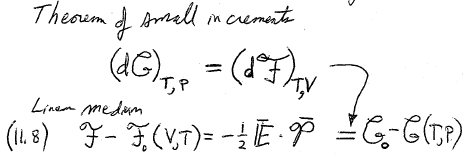 Theorem of small increments
(dG)_{T,P} = (dF)_{T,V}
Linear medium
(11.8) F - F_0(V,T) = -½ E · P = G_0 - G(T,P)